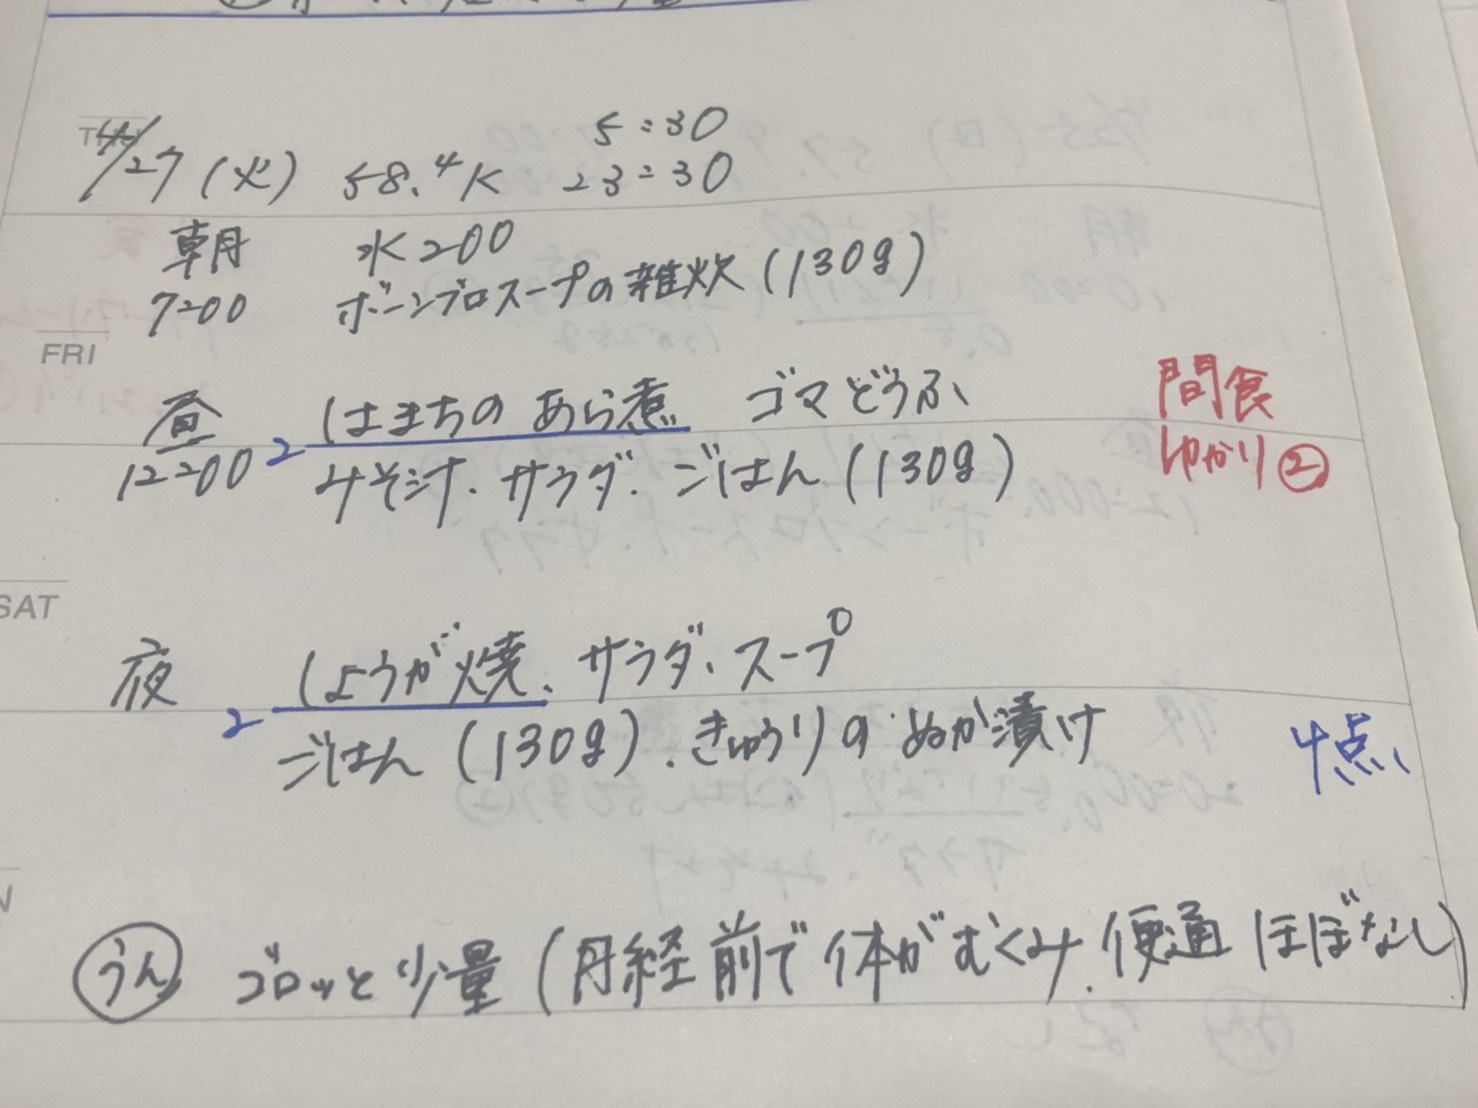 5:30
4/27(火) 58.4K 23:30
朝 水200
7:00 ボーンブロスープの雑炊(130g)
FRI
昼 はまちのあら煮 ゴマどうふ
12:00 2 みそ汁、サラダ、ごはん(130g)
間食
ゆかり②
SAT
夜 しょうが焼、サラダ、スープ
2 ごはん(130g)、きゅうりのぬか漬け
4点、
うん ゴロッと少量(月経前で体がむくみ、便通ほぼなし)